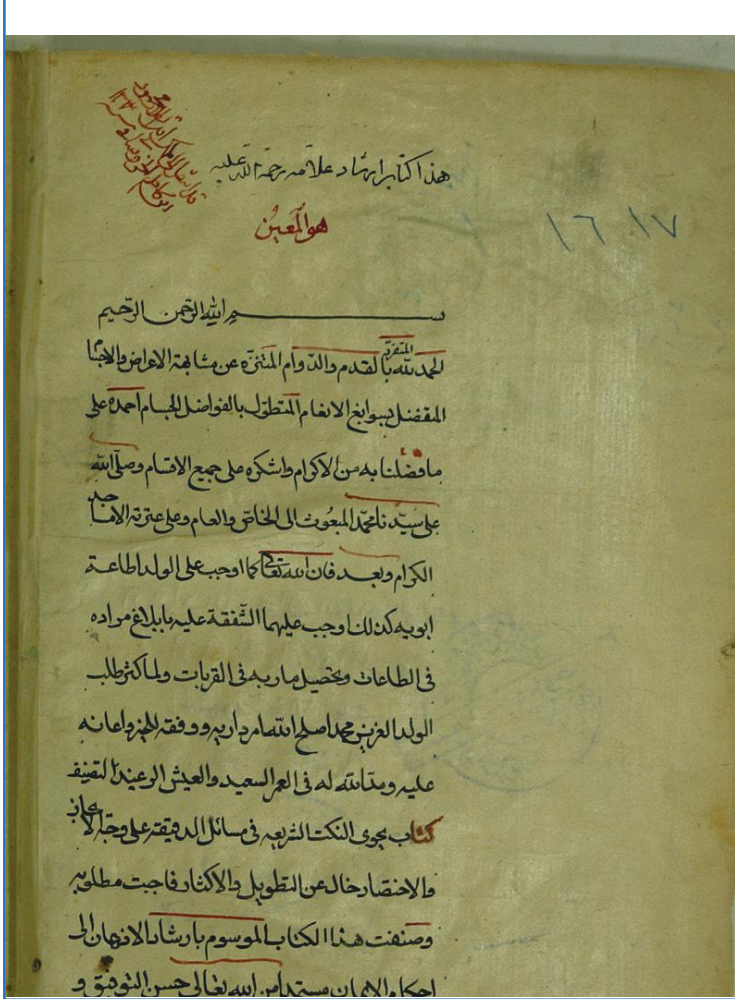 هذا كتاب ارشاد علامه رحمة الله عليه
١٦٠١٧
هو المعين
بسم الله الرحمن الرحيم
الحمد لله المتفرد بالقدم والدوام المتنزه عن مشابهة الاعراض والاجسا
المتفضل بسوابغ الانعام المتطول بالفواضل الجسام احمده على
ما فضلنا به من الاكرام واشكره على جميع الاقسام وصلى الله
على سيدنا محمد المبعوث الى الخاص والعام وعلى عترته الاماجد
الكرام وبعد فان الله تعالى كما اوجب على الولد اطاعة
ابويه كذلك اوجب عليهما الشفقة عليه بابلاغ مراده
فى الطاعات وتحصيل ماربه فى القربات ولما كثر طلب
الولد العزيز محمد اصلح الله امر داريه ووفقه للخير واعانه
عليه ومد الله له فى العمر السعيد والعيش الرغيد لتصنيف
كتاب يحوى النكت الشريعه فى مسائل الدقيقة على وجه الايجاز
والاختصار خال عن التطويل والاكثار فاجبت مطلوبه
وصنفت هذا الكتاب الموسوم بارشاد الاذهان الى
احكام الايمان مستمدا من الله تعالى حسن التوفيق و